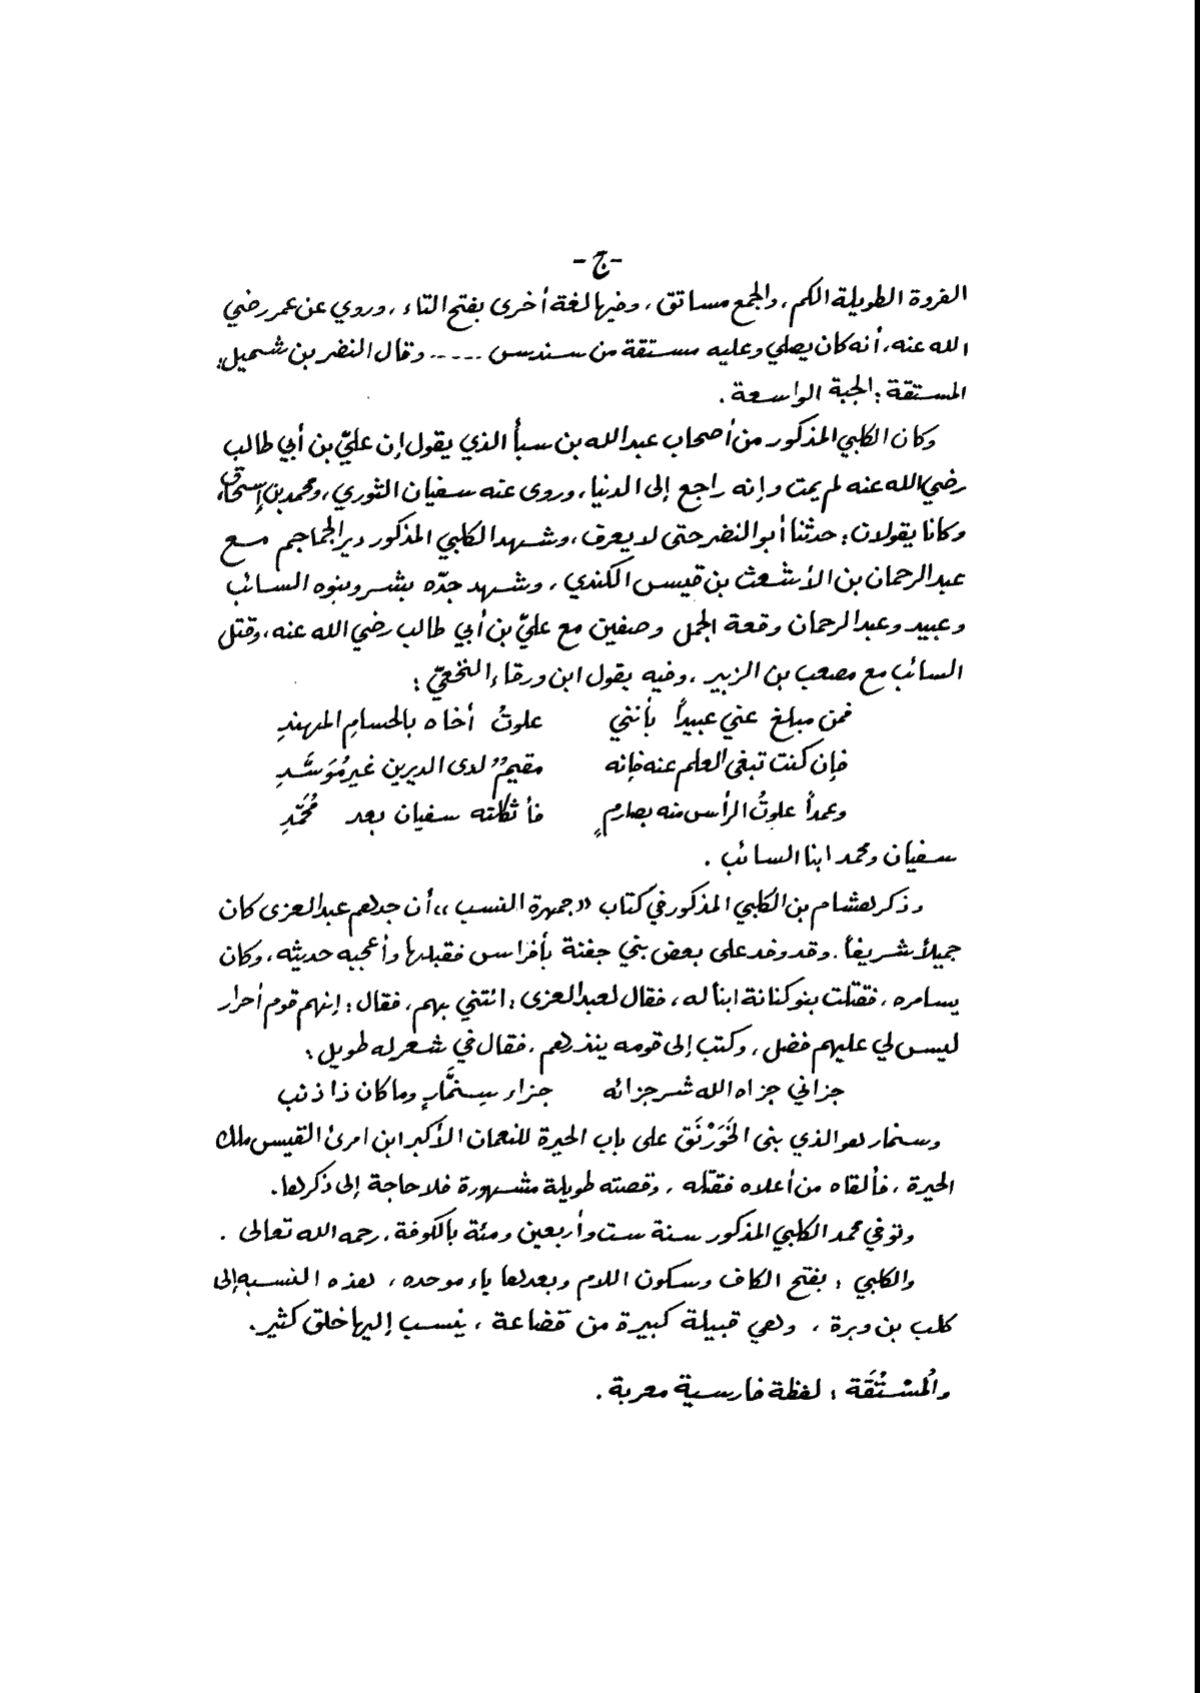 -ج-
الفروة الطويلة الكم، والجمع مساتق، وفيها لغة أخرى بفتح التاء، وروي عن عمر رضي
الله عنه، أنه كان يصلي وعليه مستقة من سندس ----- وقال النضر بن شميل:
المستقة: الجبة الواسعة.
وكان الكلبي المذكور من أصحاب عبدالله بن سبأ الذي يقول إن عليّ بن أبي طالب
رضي الله عنه لم يمت وإنه راجع إلى الدنيا، وروى عنه سفيان الثوري، ومحمد بن إسحاق،
وكانا يقولان: حدثنا أبو النضر حتى لا يعرف، وشهد الكلبي المذكور دير الجماجم مع
عبد الرحمان بن الأشعث بن قيس الكندي، وشهد جدّه بشر وبنوه السائب
وعبيد وعبد الرحمان وقعة الجمل وصفين مع عليّ بن أبي طالب رضي الله عنه، وقتل
السائب مع مصعب بن الزبير، وفيه يقول ابن ورقاء النخعيّ:
فمن مبلغ عني عبيداً بأنني علوتُ أخاه بالحسامِ المهندِ
فإن كنت تبغي العلم عنه فإنه مقيمٌ لدى الديرين غير مُوَسَّدِ
وعمداً علوتُ الرأس منه بصارمٍ فأثكلته سفيان بعد مُحَمّدِ
سفيان ومحمد ابنا السائب.
وذكر هشام بن الكلبي المذكور في كتاب «جمهرة النسب» أن جدهم عبد العزى كان
جميلاً شريفاً. وقد وفد على بعض بني جفنة بأفراس فقبلها وأعجبه حديثه، وكان
يسامره، فقتلت بنو كنانة ابنا له، فقال لعبد العزى: ائتني بهم، فقال: إنهم قوم أحرار
ليس لي عليهم فضل، وكتب إلى قومه ينذرهم، فقال في شعر له طويل:
جزاني جزاه الله شر جزائه جزاء سِنمَّارٍ وما كان ذا ذنب
وسنمار هو الذي بنى الخَوَرْنَق على باب الحيرة للنعمان الأكبر ابن امرئ القيس ملك
الحيرة، فألقاه من أعلاه فقتله، وقصته طويلة مشهورة فلا حاجة إلى ذكرها.
وتوفي محمد الكلبي المذكور سنة ست وأربعين ومئة بالكوفة، رحمه الله تعالى.
والكلبي: بفتح الكاف وسكون اللام وبعدها باء موحده، هذه النسبه إلى
كلب بن وبرة، وهي قبيلة كبيرة من قضاعة، ينسب إليها خلق كثير.
والُمسْتُقَة: لفظة فارسية معربة.